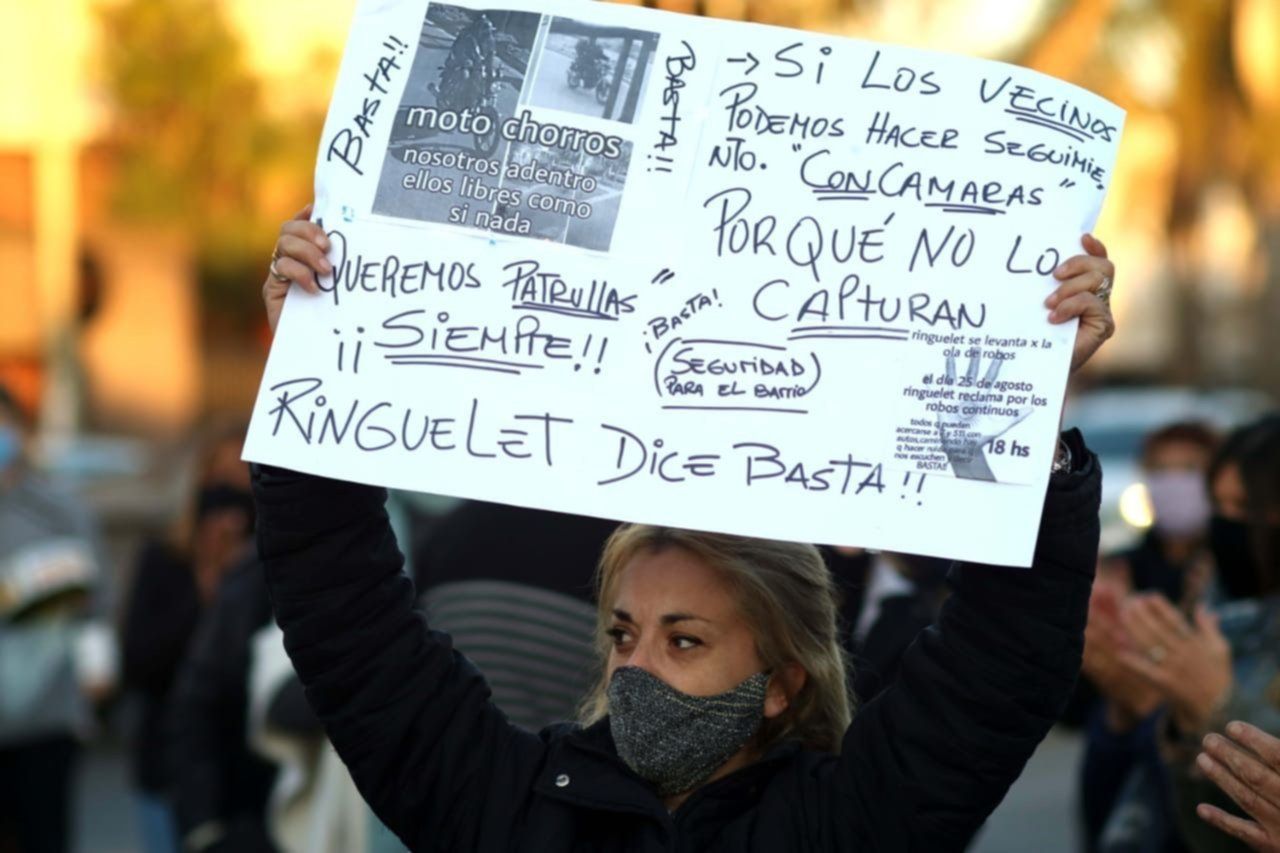 BASTA!!
moto chorros
nosotros adentro
ellos libres como
si nada
BASTA!!
→ Si LOS VECINOS
PODEMOS HACER SEGUIMIE
NTO. "CON CAMARAS"
PORQUÉ NO LO
CAPTURAN
QUEREMOS PATRULLAS "
¡¡SIEMPRE!!
¡BASTA!
(SEGURIDAD
PARA EL BARRIO)
RINGUELET DICE BASTA!!
ringuelet se levanta x la
ola de robos
el día 25 de agosto
ringuelet reclama por los
robos continuos
todos q puedan
acercarse a 7 y 511 con
autos, caminando hay
q hacer ruido para q
nos escuchen
BASTA!!
18 hs